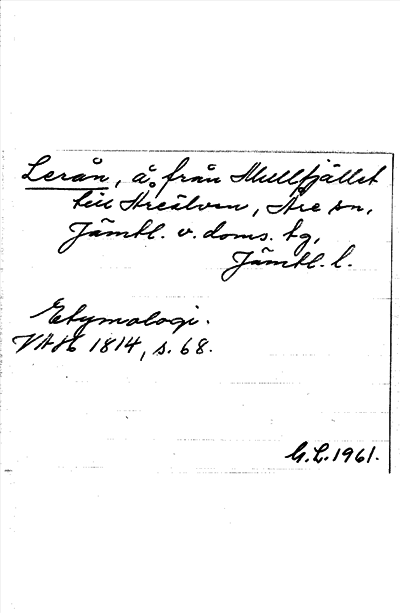 Lerån, å från Mullfjället
till Åreälven, Åre sn,
Jämtl. v. doms. tg,
Jämtl. l.
Etymologi.
VAH 1814, s. 68.
G.L. 1961.